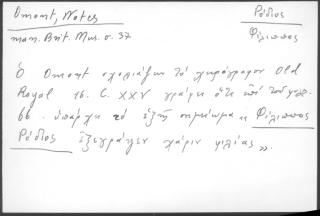 Omont, Notes
Ρόδιος
man. Brit. Mus. σ. 37
Φίλιππος
Ὁ Omont σχολιάζων τὸ χειρόγραφον Old
Royal 16. C. XXV γράφει ὅτι ὑπὸ τοῦ
66. ὑπάρχει τὸ ἑξῆς σημείωμα « Φίλιππος
Ρόδιος ἐξεγράψεν χάριν φιλίας ».